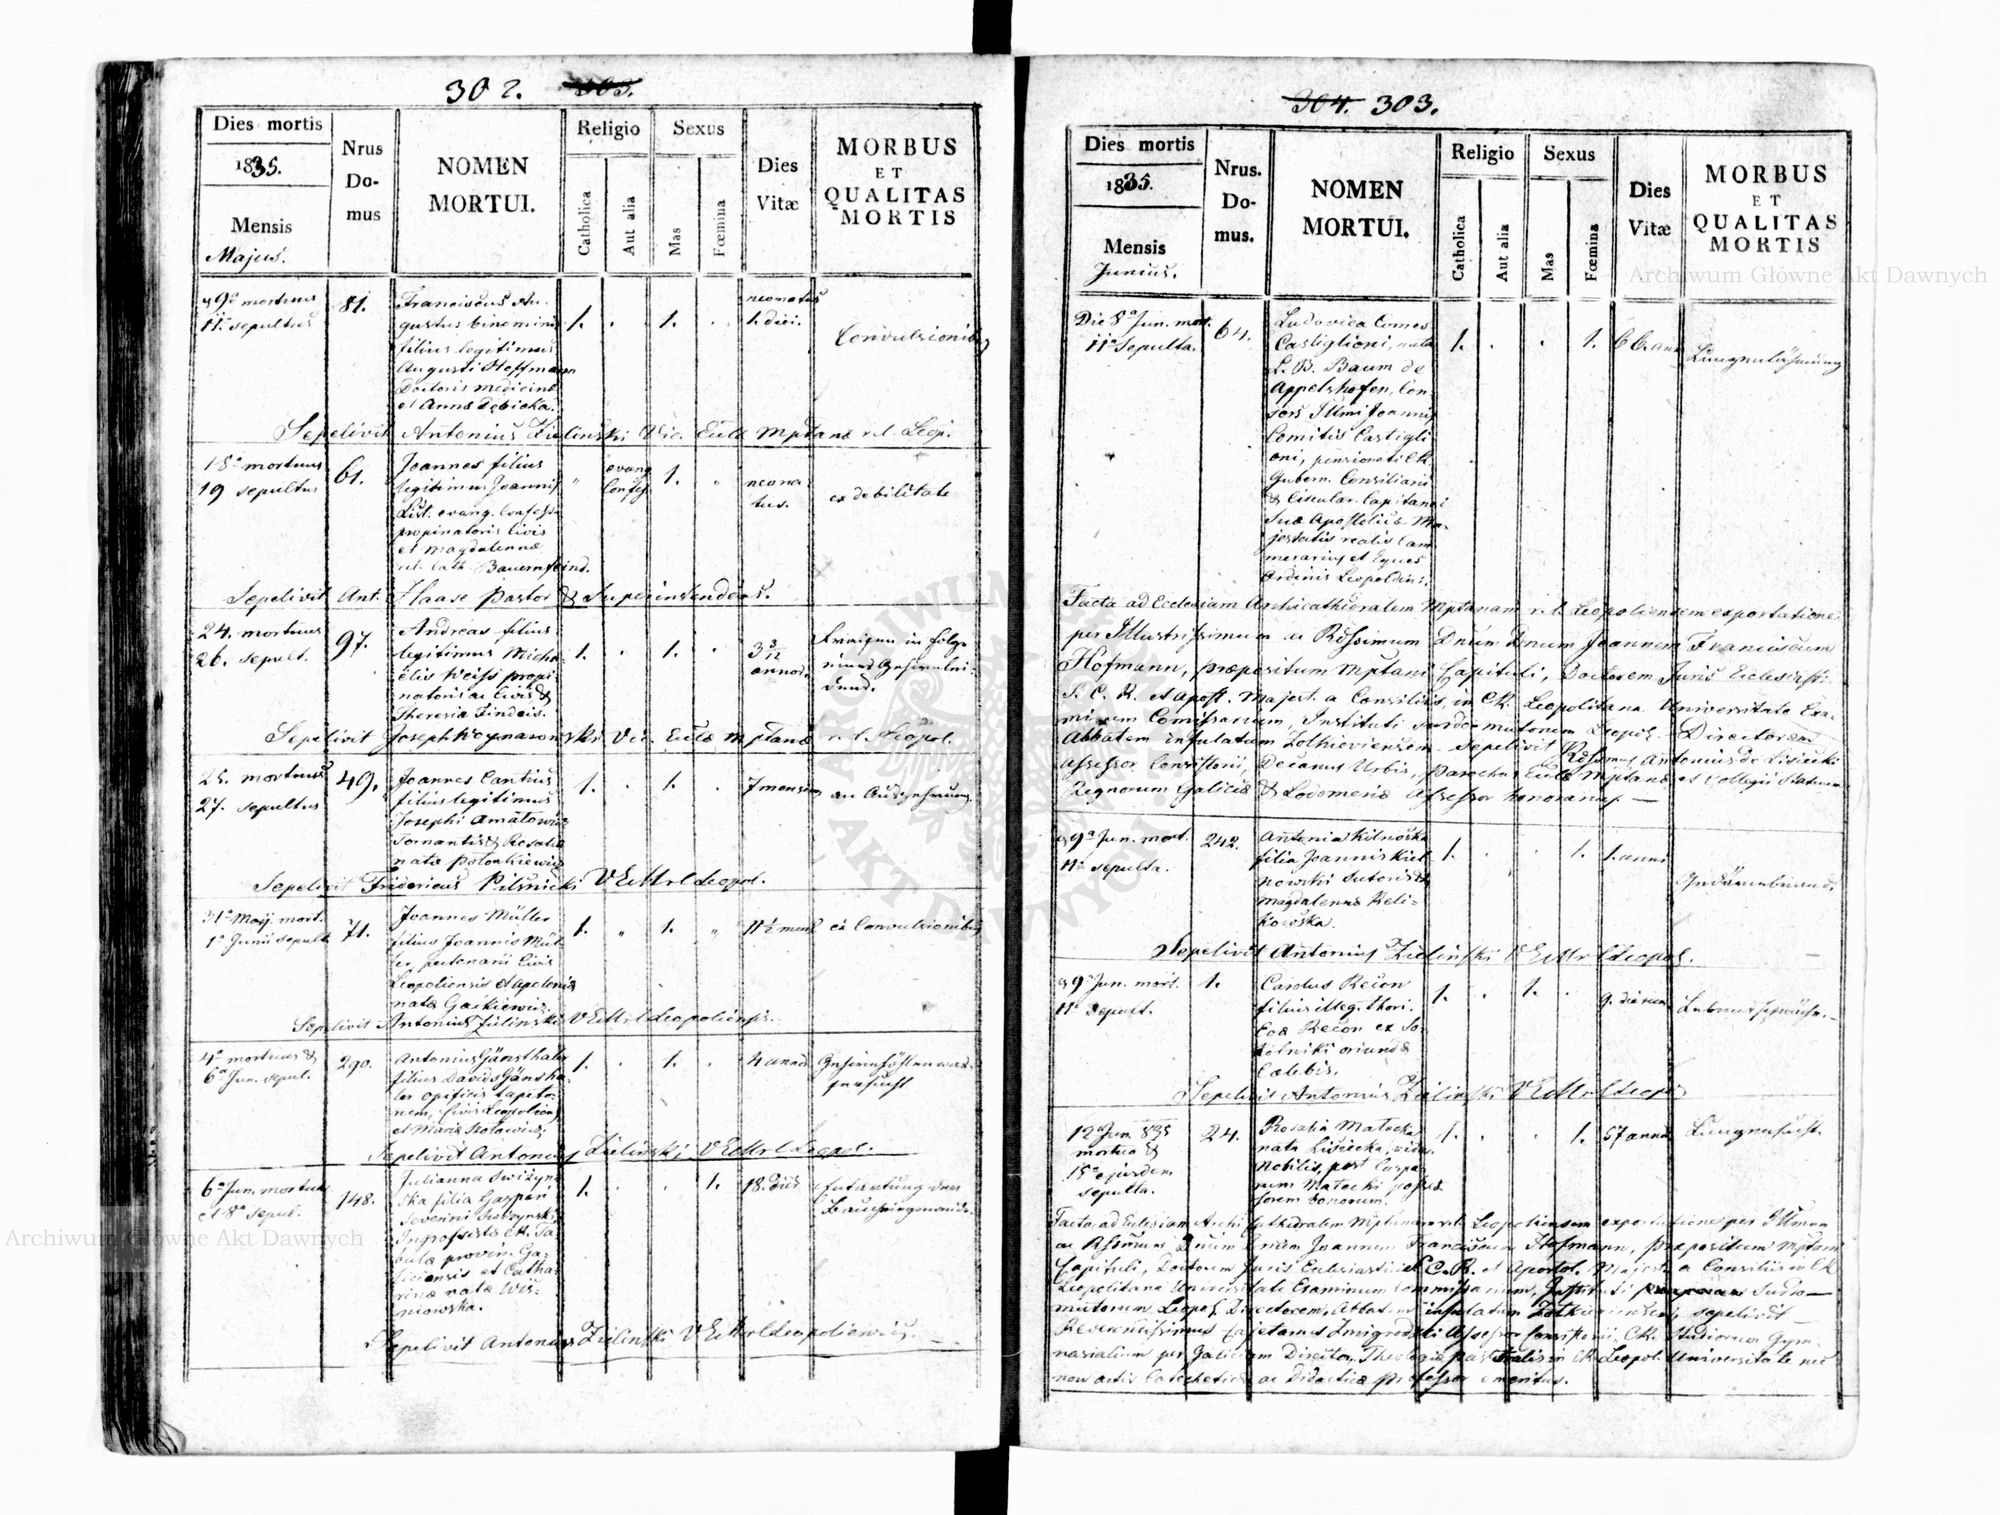 302. 303.
Dies mortis
1835.
Mensis
Majus.
Nrus
Do-
mus
NOMEN
MORTUI.
Religio
Catholica
Aut alia
Sexus
Mas
Fœmina
Dies
Vitæ
MORBUS
ET
QUALITAS
MORTIS
9a mortuus
11a sepultus
81.
Franciscus Au-
gustus binomini
filius legitimus
Augusti Hoffmann
Doctoris Medicinæ
et Anna Dębicka.
1. . 1. .
neonatus
1. diei.
Convulsionib
Sepelivit Antonius Zielinski Vic. Eccle Mptanæ r.l. Leop.
18a mortuus
19 sepultus
61.
Joannes filius
legitimus Joannis
List. evang. Confess.
propinatoris Civis
et Magdalennæ
rit. lath. Bauernfeind.
" evang.
Confess. 1. "
neona
tus.
ex debilitate
Sepelivit Ant. Haase Pastor & Superintendens.
24. mortuus
26. sepult.
97.
Andreas filius
legitimus Micha
elis Weiss propi
natoris ac Civis &
Theresia Findeis.
1. . 1. .
3 3/12
annor.
Fraisen in folge
Sepelivit Joseph Vic. Eccle Mptanæ r.l. Leopol.
25. mortuus
27. sepultus
49.
Joannes Cantius
filius legitimus
Josephi Amatowicz
Tornantis & Rosaliæ
natæ Polonkiewicz
1. . 1. .
7 mensium
an Auszehrung
Sepelivit Fridericus Pilsnicki VEMrlLeopol.
31a Maij. mort.
1a Junii sepult.
71.
Joannes Müller
filius Joannis Mül-
ler, Civis
Leopoliensis et Apolonia
natæ Gackiewicz.
1. " 1. "
11 1/2 mens
ex Convulsionibus
Sepelivit Antonius Zielinski VEMrlLeopoliensis.
4a mortuus &
6a Jun. sepul.
290.
Antonius Gänsthaler
filius Davids Gänstha-
ler opificis tapeto-
rum, Civis Leopolien
et Maria
1. . 1. .
4 annor
Gehirnhöhlenwas-
sersucht
Sepelivit Antonius Zielinski VEMrlLeopol.
6a Jun. mortua
et 8a sepul.
148.
Julianna
ska filia Gaspari
Severini
Ingrossista CR. Ta-
bulæ provin. Ga-
liciensis et Catha-
rinæ natæ Wis-
niowska.
1. . . 1.
18. dies
Entartung der
Sepelivit Antonius Zielinski VEMrlLeopoliensis.
304. 303.
Dies mortis
1835.
Mensis
Junius.
Nrus.
Do-
mus.
NOMEN
MORTUI.
Religio
Catholica
Aut alia
Sexus
Mas
Fœmina
Dies
Vitæ
MORBUS
ET
QUALITAS
MORTIS
Die 8a Jun. mort.
11a Sepulta.
64.
Ludovica Comes
Castiglioni, nata
L. B. Baum de
Appelshofen, Con-
sors Illmi Joannis
Comitis Castigli
oni, pensionati CR.
Gubern. Consiliarii
& Circular. Capitanei
Suæ Apostolicæ Ma-
jestatis realis Cam
merarius et Eques
Ordinis Leopoldini.
1. . . 1.
66. ann
Lungenlähmung
Facta ad Ecclesiam Archicathedralem Mptanam r.l. Leopoliensem exportatione
per Illustrissimum ac Rssmum Dnum Dnum Joannem Franciscum
Hofmann, præpositum Mptani Capituli, Doctorem Juris Ecclesiasti
S. C. R. et Apost. Majest. a Consiliis, in CR. Leopolitana Universitate Exa-
minum Comissarium, Instituti surdo mutorum Leopol. Directorem
Abbatem infulatum Zolkieviensem - sepelivit Rssmus Antonius de Lisiecki
Assessor Consistorii, Decanus Urbis, Parochus Eccle Mptanæ et Collegii Statuum
Regnorum Galiciæ & Lodomeriæ Assessor honorarius. —
9a Jun. mort.
11a sepulta.
242.
Antonia Kilnoska
filia Joannis Kiel
nowski sutoris &
Magdalennæ Reli-
kowska.
1. . . 1.
1. anni
Sepelivit Antonius Zielinski VEMrlLeopol.
9a Jun. mort.
11a sepult.
1.
Carolus Recon
filius illeg. thori.
Eva Recon ex So
kolniki oriunda
Cælebis.
1. . 1. .
9. dierum
Lebensschwäche. —
Sepelivit Antonius Zielinski VEMrlLeopol
12a Jun. 835
mortua &
15a ejusdem
sepulta.
24.
Rosalia Matecka
nata Lisiecka, vidu.
Nobilis, post Caspa-
rum Matecki posses
sorem bonorum.
1. . . 1.
57 annor
Lungensucht.
Facta ad Eclesiam Archi Cathedralem Mptanam r.l. Leopoliensem exportatione per Illmum
ac Rssmum Dnum Dnum Joannem Franciscum Hofmann, Præpositum Mptani
Capituli, Doctorem Juris Ecclesiastici S. C. R. et Apostol. Majest. a Consiliis in CR
Leopolitana Universitate Examinum Commissarium, Instituti Surdo—
mutorum Leopol. Directorem, Abbatem infulatum Zolkieviensem, sepelivit —
Reverendissimus Cajetanus Zmigrodzki Assessor Consistorii, CR. Studiorum Gym-
nasialium per Galiciam Director, Theologiæ pastoralis in CR. Leopol. Universitate nec
non artis Catecheticæ ac didacticæ professor emeritus.
Archiwum Główne Akt Dawnych
Archiwum Główne Akt Dawnych
ARCHIWUM
AKT DAWNYCH